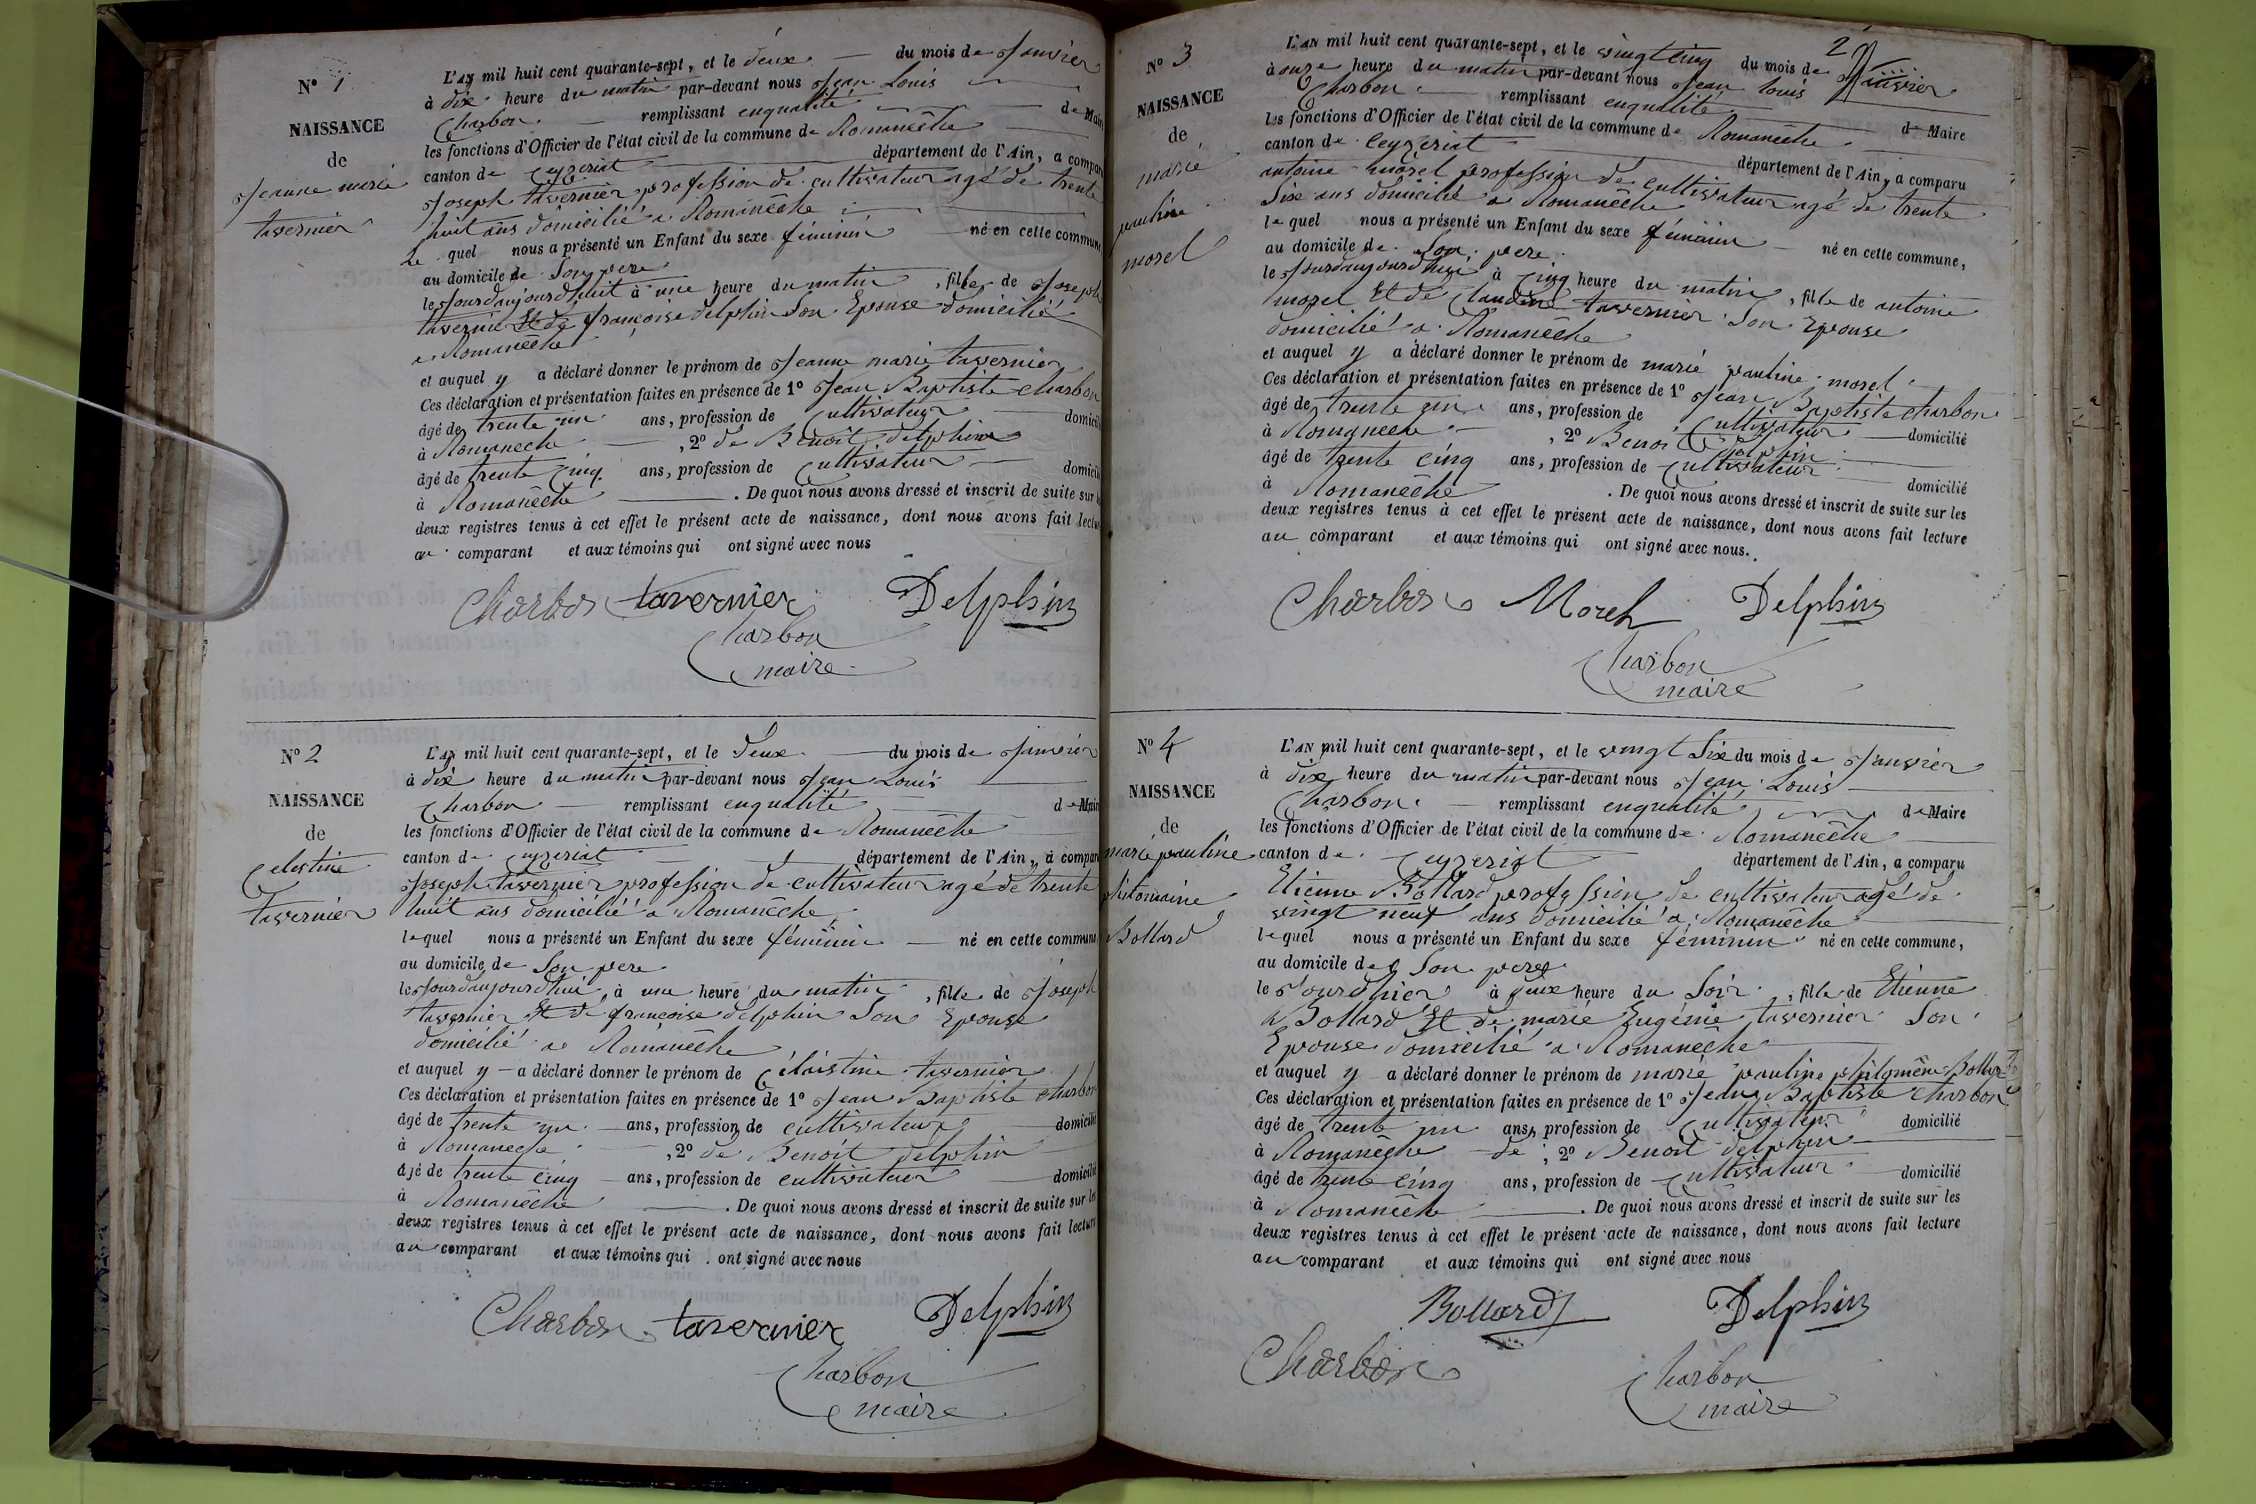 N° 1
NAISSANCE
de
Jeanne marie
tavernier
L'AN mil huit cent quarante-sept, et le deux du mois de Janvier
à dix heure du matin par-devant nous Jean Louis
Charbon remplissant enqualité de Maire
les fonctions d'Officier de l'état civil de la commune de Romanêche
canton de Ceyzeriat département de l'Ain, a comparu
Joseph tavernier profession de cultivateur agé de trente
huit ans domicilié a Romanêche
le quel nous a présenté un Enfant du sexe féminin né en cette commune
au domicile de Son pere
le Jourdaujourdhuit à une heure du matin, fille de Joseph
tavernier Et de françoise delphin Son Epouse domicilié
a Romanêche
et auquel y a déclaré donner le prénom de Jeanne marie tavernier
Ces déclaration et présentation faites en présence de 1° Jean Baptiste charbon
âgé de trente un ans, profession de Cultivateur domicilié
à Romanêche, 2° de Benoît delphin
âgé de trente Cinq ans, profession de Cultivateur domicilié
à Romanêche. De quoi nous avons dressé et inscrit de suite sur les
deux registres tenus à cet effet le présent acte de naissance, dont nous avons fait lecture
au comparant et aux témoins qui ont signé avec nous
Charbon tavernier Delphin
Charbon
maire
N° 2
NAISSANCE
de
Celestine
tavernier
L'AN mil huit cent quarante-sept, et le deux du mois de Janvier
à dix heure du matin par-devant nous Jean Louis
Charbon remplissant enqualité de Maire
les fonctions d'Officier de l'état civil de la commune de Romanêche
canton de Ceyzeriat département de l'Ain, a comparu
Joseph tavernier profession de cultivateur agé de trente
huit ans domicilié a Romanêche
lequel nous a présenté un Enfant du sexe féminin né en cette commune
au domicile de Son pere
le Jourdaujourdhui à une heure du matin, fille de Joseph
tavernier Et de françoise delphin Son Epouse
domicilié a Romanêche
et auquel y a déclaré donner le prénom de Célaistine tavernier
Ces déclaration et présentation faites en présence de 1° Jean Baptiste charbon
âgé de trente un ans, profession de cultivateur domicilié
à Romaneche, 2° de Benoit delphin
âgé de trente cinq ans, profession de cultivateur domicilié
à Romanêche. De quoi nous avons dressé et inscrit de suite sur les
deux registres tenus à cet effet le présent acte de naissance, dont nous avons fait lecture
au comparant et aux témoins qui ont signé avec nous
Charbon tavernier Delphin
Charbon
maire
2
N° 3
NAISSANCE
de
marie
pauline
morel
L'AN mil huit cent quarante-sept, et le vingtcinq du mois de Janvier
à onze heure du matin par-devant nous Jean Louis
Charbon remplissant enqualité de Maire
les fonctions d'Officier de l'état civil de la commune de Romanêche
canton de Ceyzeriat département de l'Ain, a comparu
antoine morel profession de cultivateur agé de trente
Six ans domicilié a Romanêche
le quel nous a présenté un Enfant du sexe féminin né en cette commune,
au domicile de Son pere
le Jourdaujourdhui à Cinq heure du matin, fille de antoine
morel Et de Claudine tavernier Son Epouse
domicilié a Romanêche
et auquel y a déclaré donner le prénom de marie pauline morel
Ces déclaration et présentation faites en présence de 1° Jean Baptiste charbon
âgé de trente un ans, profession de Cultivateur domicilié
à Romaneche, 2° Benoi delphin
âgé de trente cinq ans, profession de Cultivateur domicilié
à Romanêche. De quoi nous avons dressé et inscrit de suite sur les
deux registres tenus à cet effet le présent acte de naissance, dont nous avons fait lecture
au comparant et aux témoins qui ont signé avec nous.
Charbon Morel Delphin
Charbon
maire
N° 4
NAISSANCE
de
marie pauline
Bollard
L'AN mil huit cent quarante-sept, et le vingt Six du mois de Janvier
à dix heure du matin par-devant nous Jean Louis
Charbon remplissant enqualité de Maire
les fonctions d'Officier de l'état civil de la commune de Romanêche
canton de Ceyzeriat département de l'Ain, a comparu
Etienne Bollard profession de cultivateur agé de
vingt neuf ans domicilié a Romanêche
le quel nous a présenté un Enfant du sexe féminin né en cette commune,
au domicile de Son pere
le Jourdhier à deux heure du Soir, fille de Etienne
Bollard Et de marie Eugénie tavernier Son
Epouse domicilié a Romanêche
et auquel y a déclaré donner le prénom de marie pauline philomène Bollard
Ces déclaration et présentation faites en présence de 1° Jean Baptiste charbon
âgé de trente un ans, profession de Cultivateur domicilié
à Romanêche de, 2° Benoit delphin
âgé de trente cinq ans, profession de Cultivateur domicilié
à Romanêche. De quoi nous avons dressé et inscrit de suite sur les
deux registres tenus à cet effet le présent acte de naissance, dont nous avons fait lecture
au comparant et aux témoins qui ont signé avec nous
Bollard Delphin
Charbon Charbon
maire